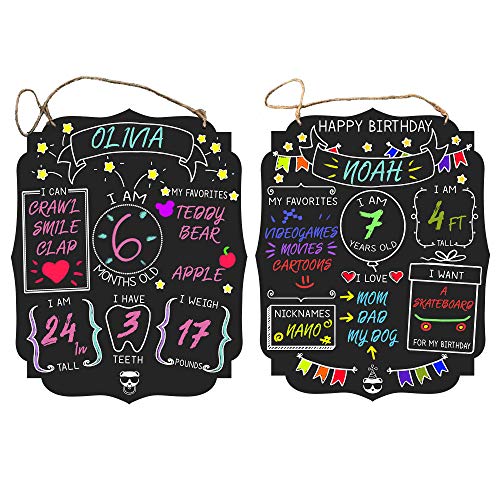 OLIVIA
I CAN
CRAWL
SMILE
CLAP
I AM
6
MONTHS OLD
MY FAVORITES
TEDDY
BEAR
APPLE
I AM
24 In
TALL
I HAVE
3
TEETH
I WEIGH
17
POUNDS
HAPPY BIRTHDAY
NOAH
MY FAVORITES
VIDEOGAMES
MOVIES
CARTOONS
I AM
7
YEARS OLD
I AM
4 FT
TALL
I LOVE
MOM
DAD
MY DOG
NICKNAMES
NANO
I WANT
A
SKATEBOARD
FOR MY BIRTHDAY